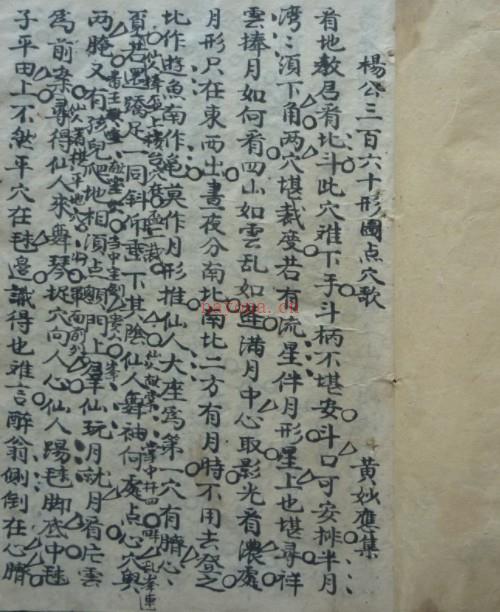 楊公三百六十形圖点穴歌 黄妙應集
看地教君看北斗此穴难下手斗柄不堪安斗口可安排半月
湾：須下角两穴堪裁度若有流星伴月形星上也堪尋祥
雲捧月如何看四山如雲乱如逢满月中心取影光看濃處
月形只在東西出晝夜分南北南北二方有月時不用去登之
北作遊魚南作亀莫作月形推仙人大座為第一穴有臍心
若遇蹺足一同斜仰垂下其陰仙人舞袖何處点心穴與
两腌又有孩兒爬地相須占顖門上羣仙玩月就月看片雲
為前案尋得仙人来舞琴捉穴向人心仙人踢毬脚底中毬
子平田上不然平穴在毬邊識得也难言醉翁側倒在心臍